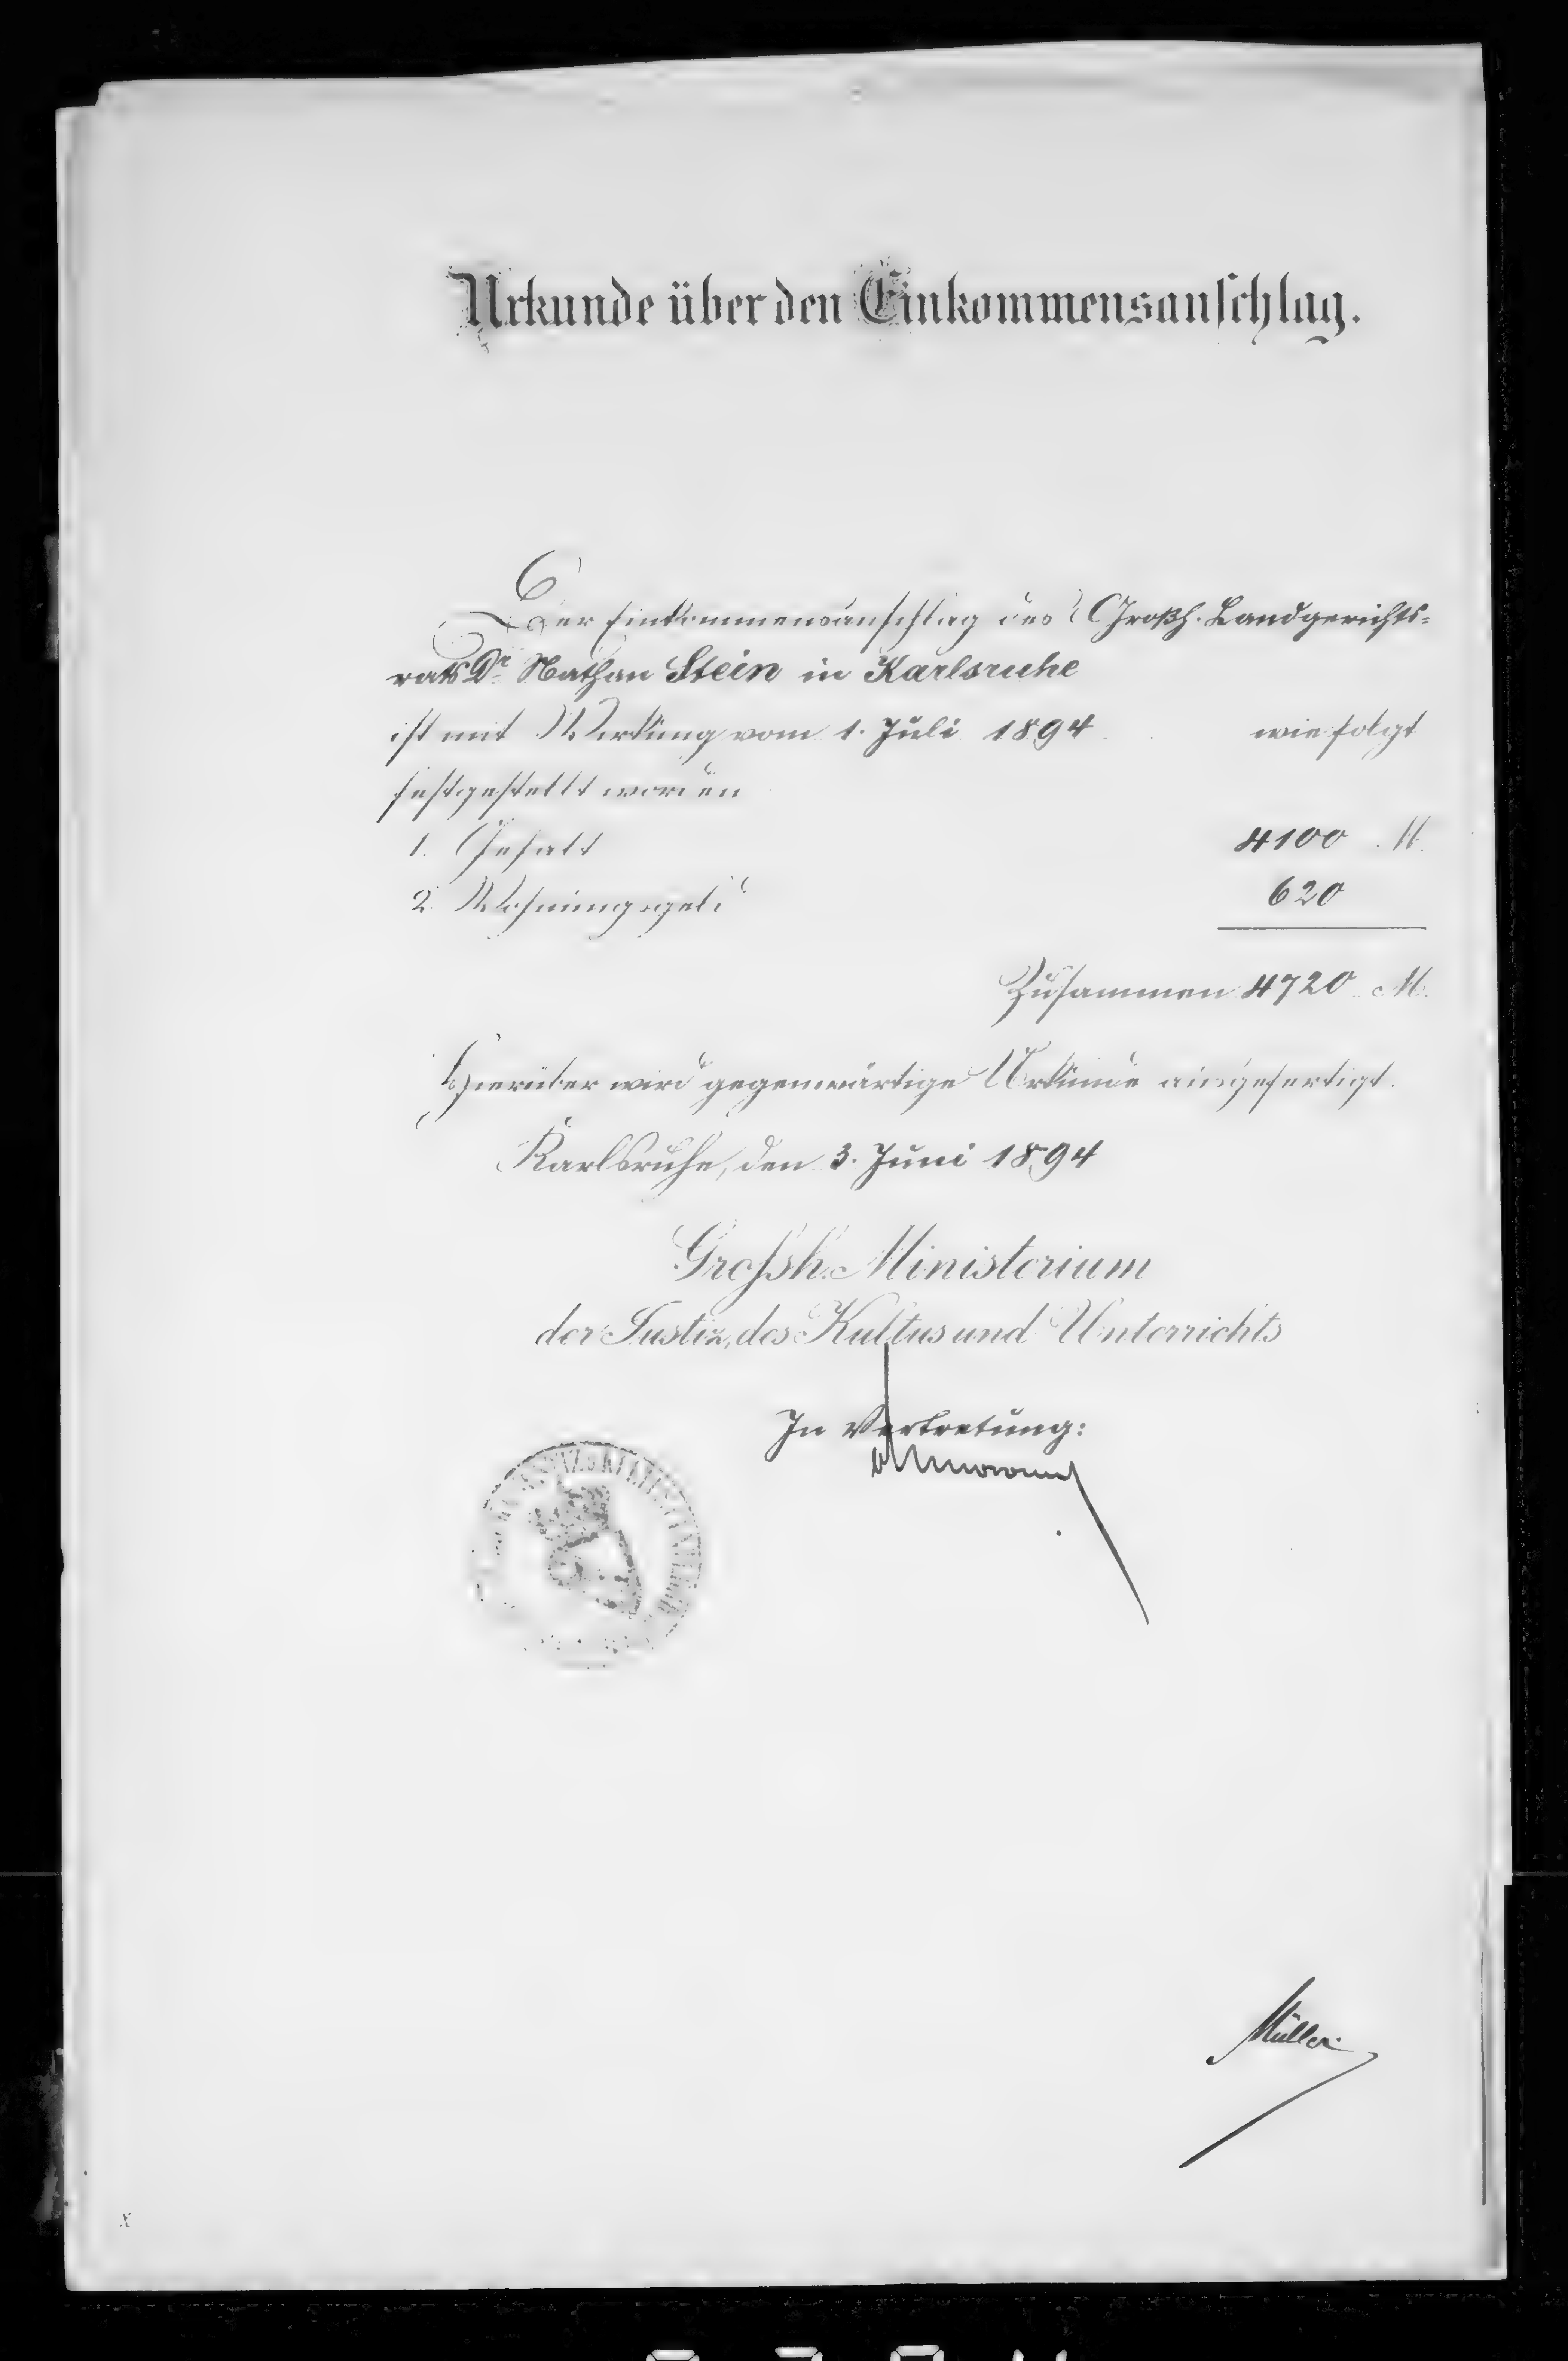 Urkunde über den Einkommensanschlag.
Der Einkommensanschlag des Großh. Landgerichts-
rats Dr. Nathan Stein in Karlsruhe
ist mit Wirkung vom 1. Juli 1894 wie folgt
festgestellt worden
1. Gehalt 4100 M.
2. Wohnungsgeld 620
Zusammen 4720 M.
Hierüber wird gegenwärtige Urkunde ausgefertigt.
Karlsruhe, den 3. Juni 1894
Grossh. Ministerium
der Justiz, des Kultus und Unterrichts
In Vertretung:
Müller